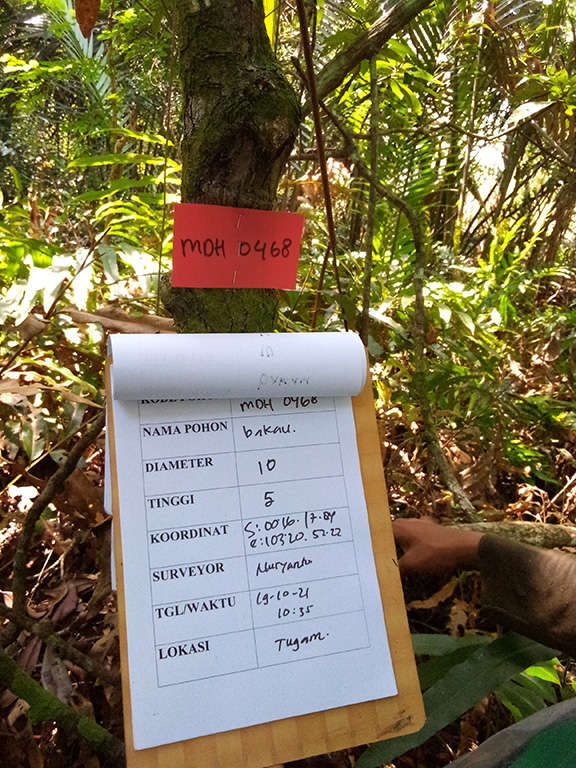 MDH 0468
MDH 0468
NAMA POHON bakau.
DIAMETER 10
TINGGI 5
KOORDINAT S:0016.17.84
e:10320.52.22
SURVEYOR Nuryanto
TGL/WAKTU 19-10-21
10:35
LOKASI Tugam.